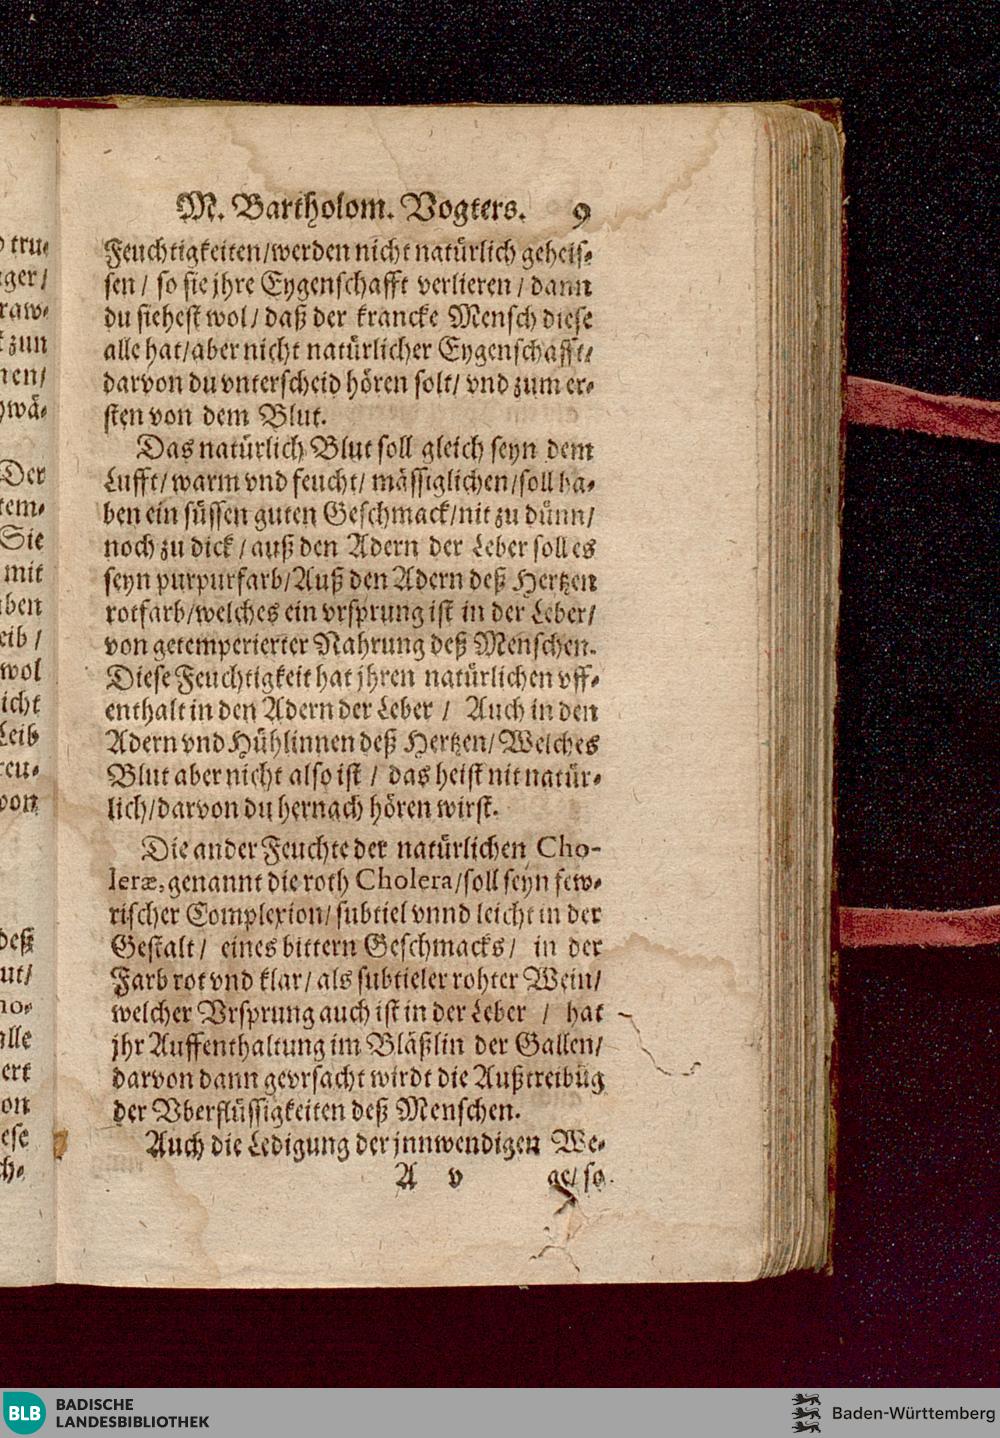 M. Bartholom. Vogters. 9
Feuchtigkeiten/werden nicht natürlich geheis-
sen/ so sie jhre Eygenschafft verlieren/ dann
du siehest wol/ daß der krancke Mensch diese
alle hat/aber nicht natürlicher Eygenschafft/
darvon du vnterscheid hören solt/ vnd zum er-
sten von dem Blut.
Das natürlich Blut soll gleich seyn dem
Lufft/warm vnd feucht/ mässiglichen/soll ha-
ben ein süssen guten Geschmack/nit zu dünn/
noch zu dick/auß den Adern der Leber soll es
seyn purpurfarb/Auß den Adern deß Hertzen
rotfarb/welches ein vrsprung ist in der Leber/
von getemperierter Nahrung deß Menschen.
Diese Feuchtigkeit hat jhren natürlichen vff-
enthalt in den Adern der Leber/ Auch in den
Adern vnd Hühlinnen deß Hertzen/Welches
Blut aber nicht also ist/ das heist nit natür-
lich/darvon du hernach hören wirst.
Die ander Feuchte der natürlichen Cho-
leræ, genannt die roth Cholera/soll seyn few-
rischer Complexion/subtiel vnnd leicht in der
Gestalt/ eines bittern Geschmacks/ in der
Farb rot vnd klar/als subtieler rohter Wein/
welcher Vrsprung auch ist in der Leber / hat
jhr Auffenthaltung im Bläßlin der Gallen/
darvon dann gevrsacht wirdt die Außtreibūg
der Vberflüssigkeiten deß Menschen.
Auch die Ledigung der jnnwendigen We-
A v ge/ so
BLB BADISCHE
LANDESBIBLIOTHEK
Baden-Württemberg